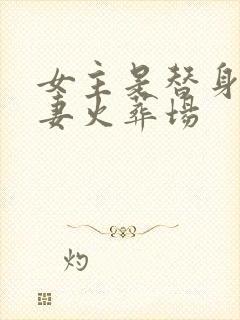 女主是替身
妻火葬场
灼